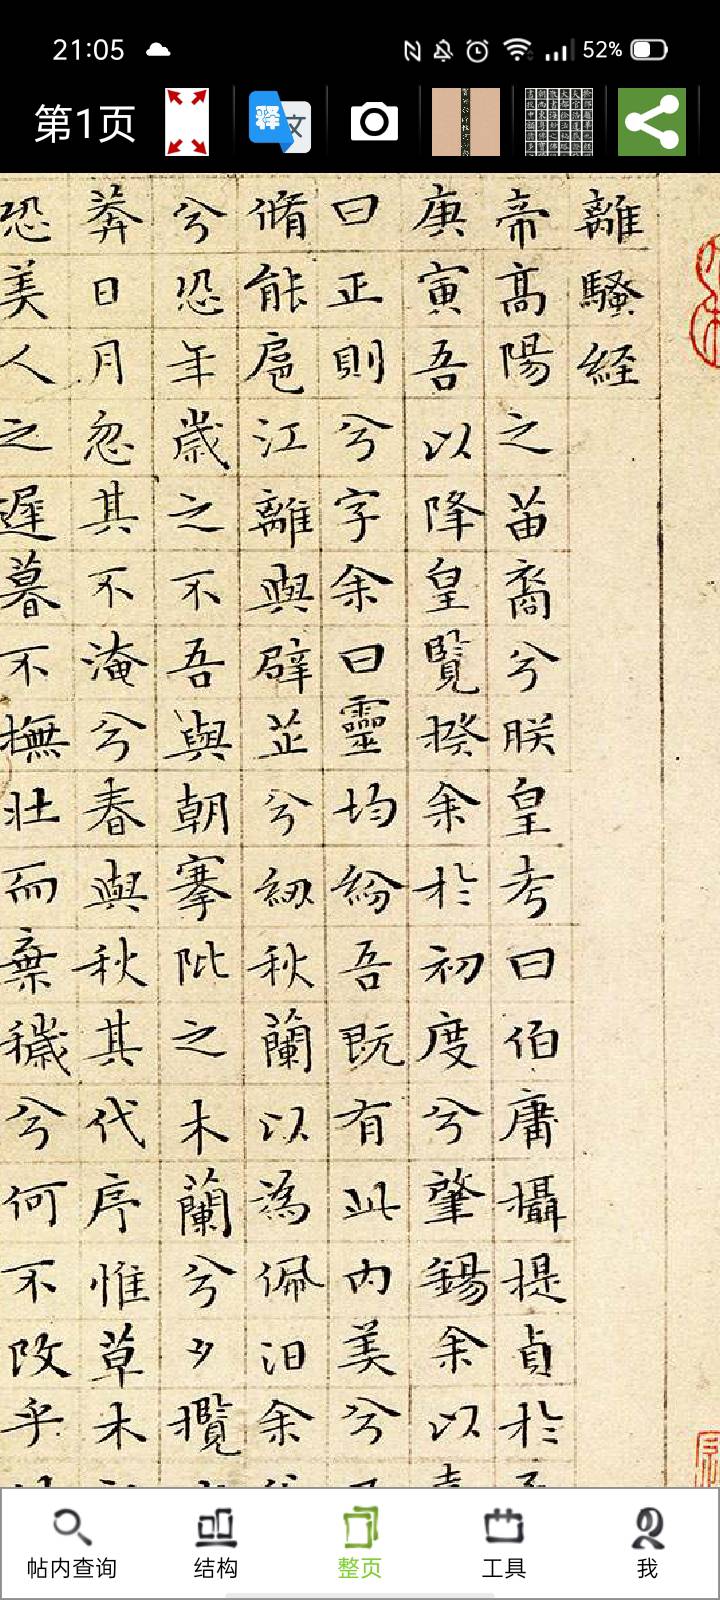 21:05
52%
第1页
释文
離騷経
帝高陽之苗裔兮朕皇考曰伯庸攝提貞於
庚寅吾以降皇覽揆余於初度兮肇錫余以
曰正則兮字余曰靈均紛吾既有此內美兮
脩能扈江離與薜芷兮紉秋蘭以為佩汨余
兮恐年歲之不吾與朝搴阰之木蘭兮夕攬
莽日月忽其不淹兮春與秋其代序惟草木
恐美人之遲暮不撫壯而棄穢兮何不改乎
帖内查询
结构
整页
工具
我